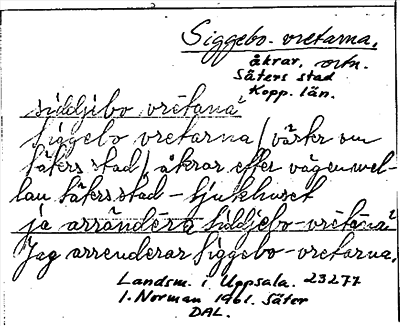 Siggebo-vretarna,
åkrar, ortn.
Säters stad
Kopp. län.
siddjibo vretana
Siggebo vretarna / väster om
Säters stad /, åkrar efter vägen mel-
lan Säters stad - sjukhuset
ja arrandera siddjebo-vretana
Jag arrenderar Siggebo-vretarna.
Landsm. i Uppsala. 23277
I. Norman 1961. Säter
DAL.